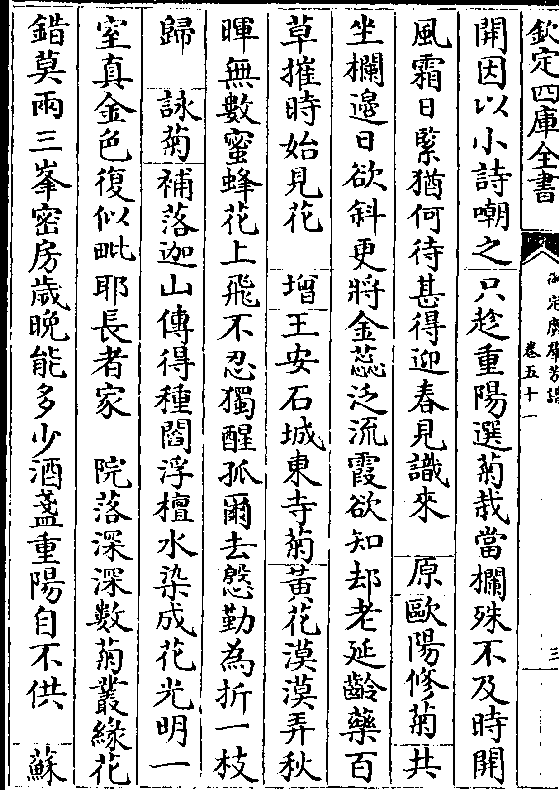 欽定四庫全書
御定廣羣芳譜
卷五十一
三
開因以小詩嘲之 只趁重陽選菊栽當欄殊不及時開
風霜日緊猶何待甚得迎春見識來 原歐陽修菊共
坐欄邉日欲斜更將金蕊泛流霞欲知却老延齡藥百
草摧時始見花 增王安石城東寺菊黃花漠漠弄秋
暉無數蜜蜂花上飛不忍獨醒孤爾去慇勤為折一枝
歸 詠菊補落迦山傳得種閻浮檀水染成花光明一
室真金色復似毗耶長者家 院落深深數菊叢緣花
錯莫兩三峯密房歲晚能多少酒盞重陽自不供 蘇